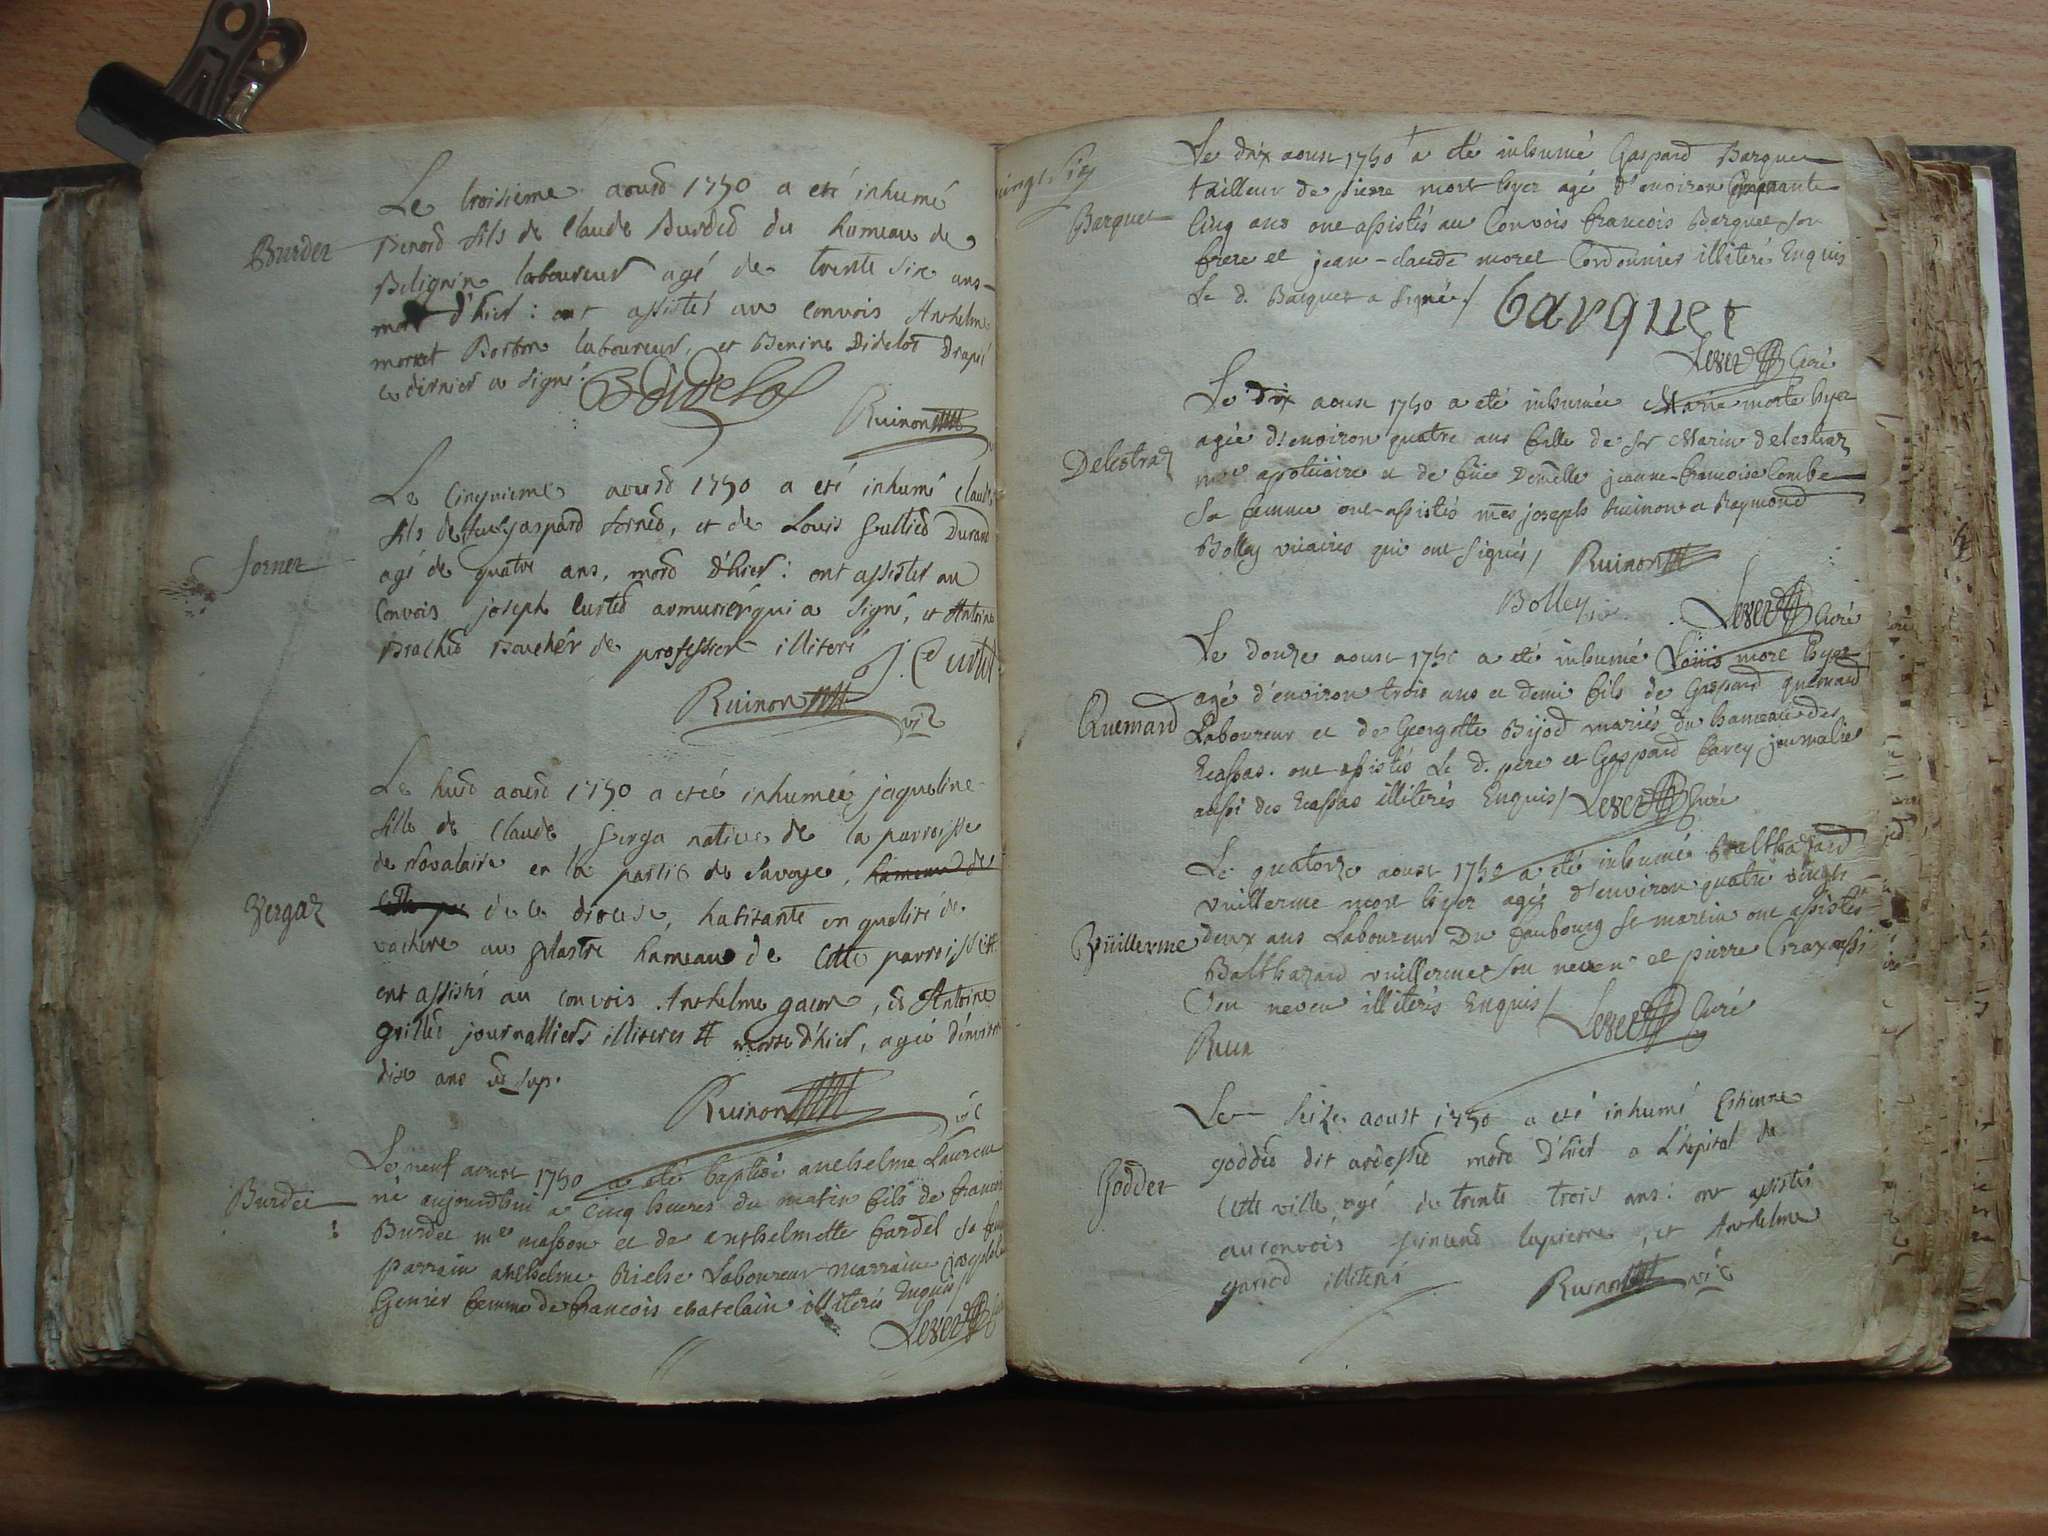 Burdet
Le troisieme aoust 1750 a eté inhumé
Benoid fils de Claude Burdet du hameau de
Bilignin laboureur agé de trente six ans
mort d'hier : ont assisté au convois Anthelme
laboureur, et Benine Didelot Drapi
ce dernier a signé. BDidelot
Ruinon
Le cinquieme aoust 1750 a eté inhumé claude
fils de feu gaspard sorned, et de Louis Durand
Sornet
agé de quatre ans, mord d'hier : ont assister au
convois joseph Curted armuriér qui a signé, et Antoine
Brached Bouchér de professior illiteré
J. Curtet
Ruinon vic
Le huid aoust 1750 a eteé inhumeé jaqueline
fille de claude Verga native de la parroisse
de Novalaise en la partie de Savoye, hameau de
Vergaz
cette par de ce diocese, habitante en qualité de
vachere au hameau de cette parroisse
ont assistés au convois Anthelme gacon, et Antoine
grilled journalliers illiteres morte d'hier, ageé d'environ
dix ans ut sup.
Ruinon vic
Le neuf aoust 1750 a eté baptisé anthelme Laurent
Burdet
né aujourdhui a cinq heures du matin fils de francois
Burdet me masson et de anthelmette Cardel sa femme
parrain anthelme Riche Laboureur marraine
Genier femme de francois chatelain illiterés Enquis/
Lever
vingt six
Barquet
Le dix aoust 1750 a eté inhumé Gaspard Barquet
tailleur de pierre mort hyer agé d'environ Cinquante
Cinq ans ont assistés au Convois francois Barquet son
frere et jean-claude morel Cordonnier illiteré Enquis
Le d. Barquet a signé/ barquet
Lever Curé
Le dix aoust 1750 a eté inhumée Marie morte hyer
agée d'environ quatre ans fille de sr Marin delestraz
Delestraz
me apoticaire et de Demelle jeanne-francoise Combe
sa femme ont assistés mes joseph Ruinon et Raymond
Bolley vicaires qui ont signés/ Ruinon
Bolley vic. Lever Curé
Le douze aoust 1750 a eté inhumé Loüis mort hyer
agé d'environ trois ans et demi fils de Gaspard quemard
Quemard
Laboureur et de Georgette Bijod mariés du hameau des
Ecassas. ont assistés Le d. pere et Gaspard Carey journalier
aussi des Ecassas illiterés Enquis/ Lever Curé
Le quatorze aoust 1750 a eté inhumé Balthazard
vuillerme mort hyer agé d'environ quatre vingts
Vüillerme
deux ans Laboureur Du faubourg st martin ont assistés
Balthazard vuillerme son neveu et pierre Crax aussi
son neveu illiterés Enquis/ Lever Curé
Ruin
Le seize aoust 1750 a eté inhumé Estienne
godded dit mord d'hier a L'hopital de
Goddet
cette ville agé de trente trois ans : ont assistés
au convois lapierre, et Anthelme
gariod illiterés Ruinon vic